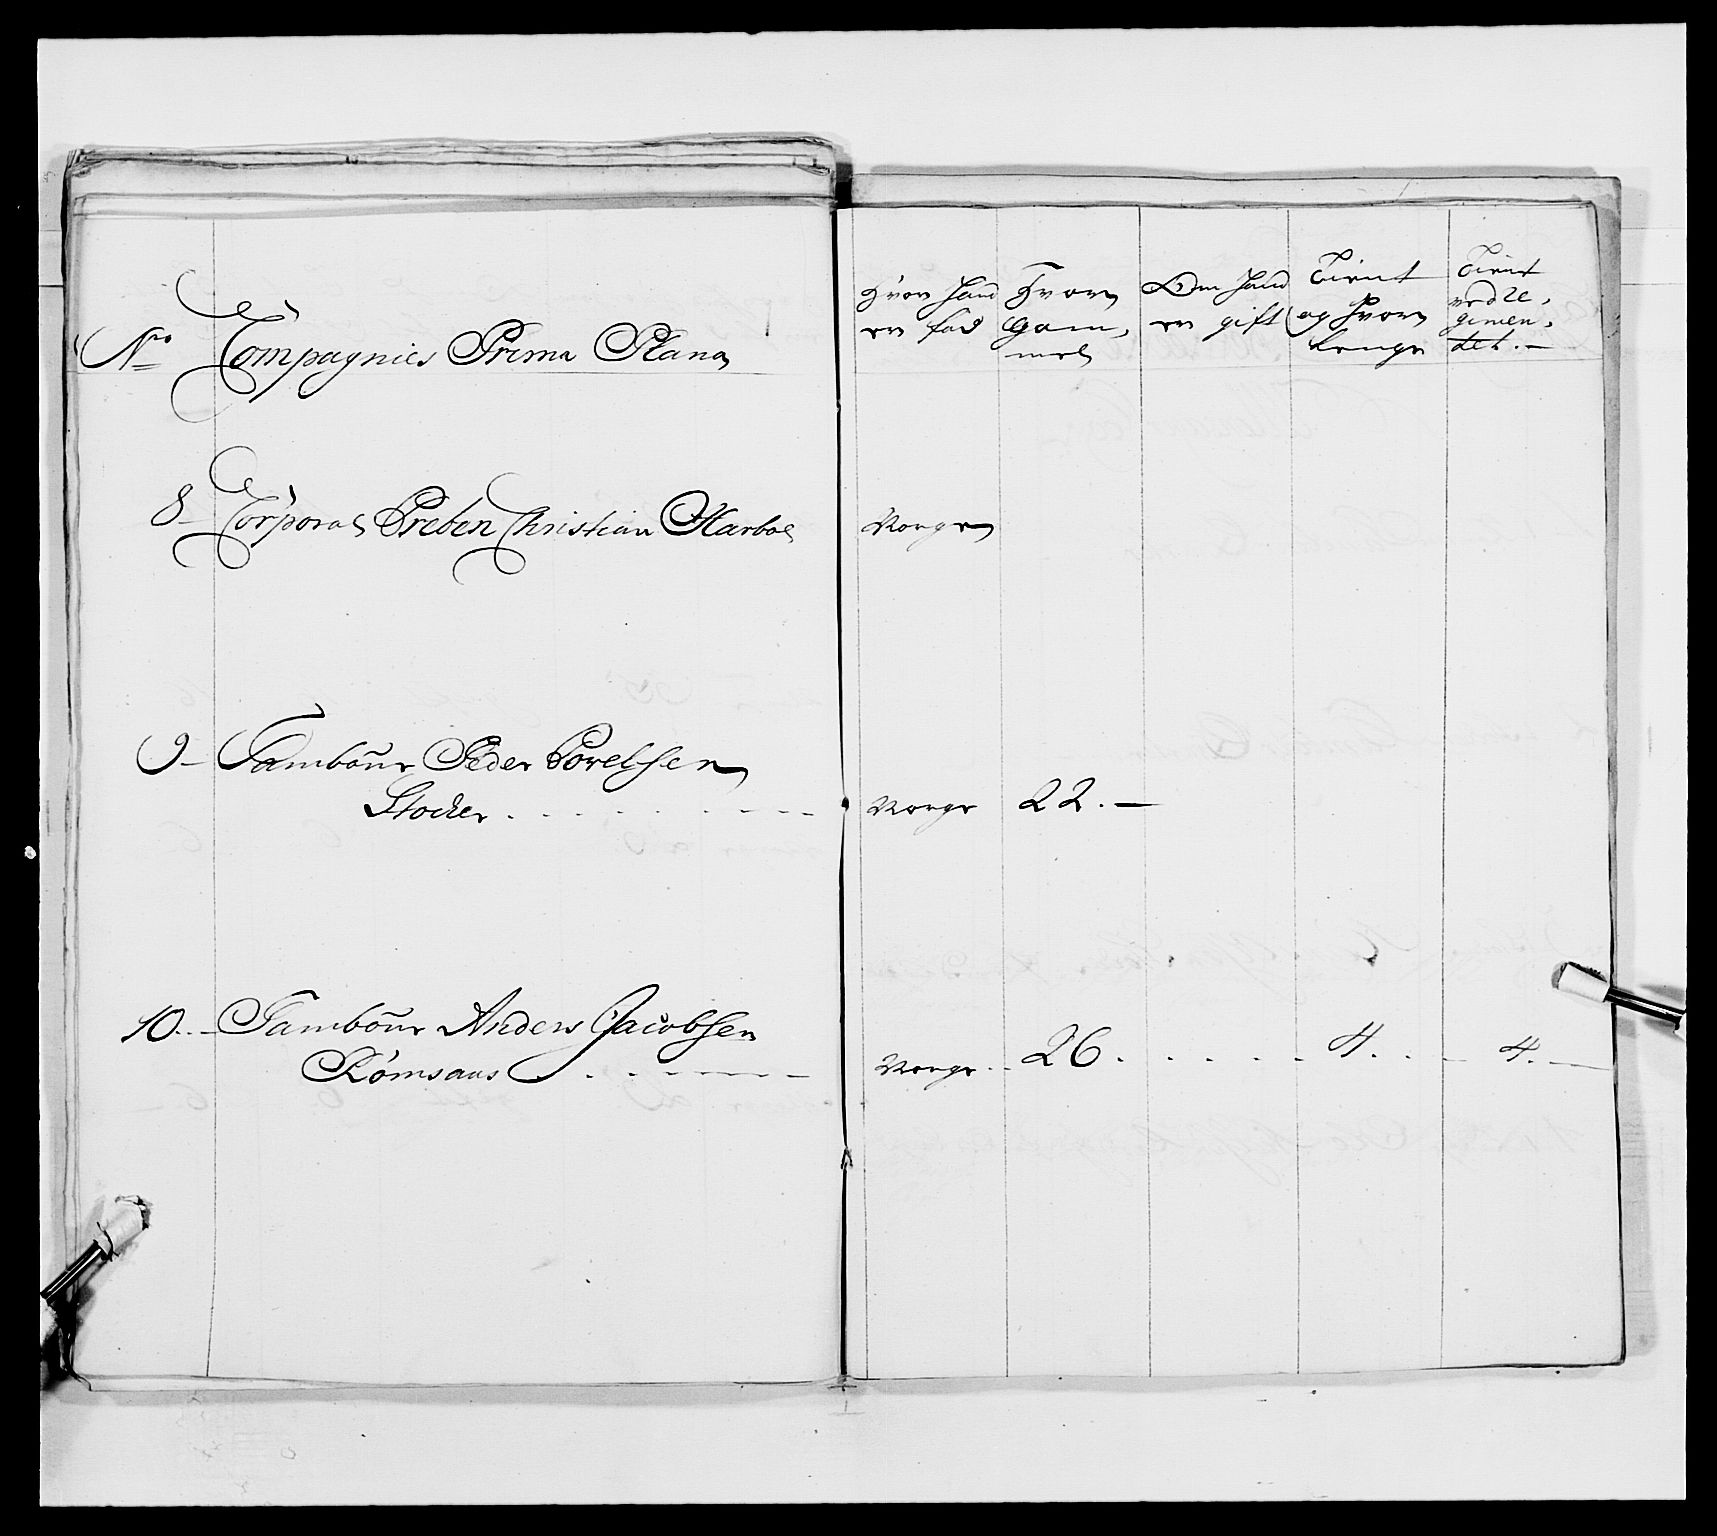 No Compagniets Prima Plana
Hvor hand er fød
Hvor Gam- mel
Om hand er gift
Tient og Hvor lenge
Tient ved Re- gimen- tet.
8 Corporal Preben Christian Harboe Norge
9 Tambour Peder Povelsen
Stocker Norge 22.
10. Tambour Anders Jacobsen
Rømsaas Norge 26. 4. 4.